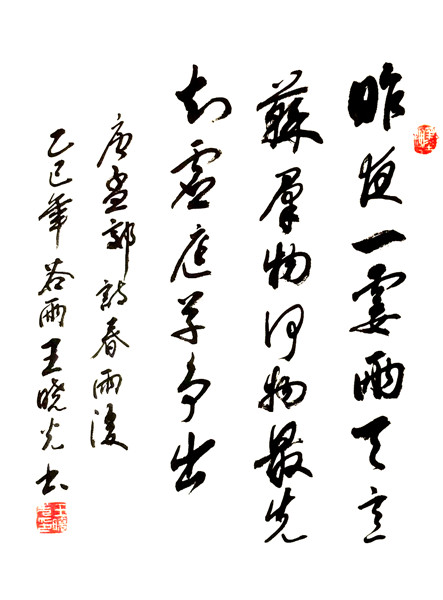 昨夜一霎雨天意
蘇羣物何物最先
知虛庭草争出
唐孟郊詩春雨後
乙巳年谷雨王晓光书